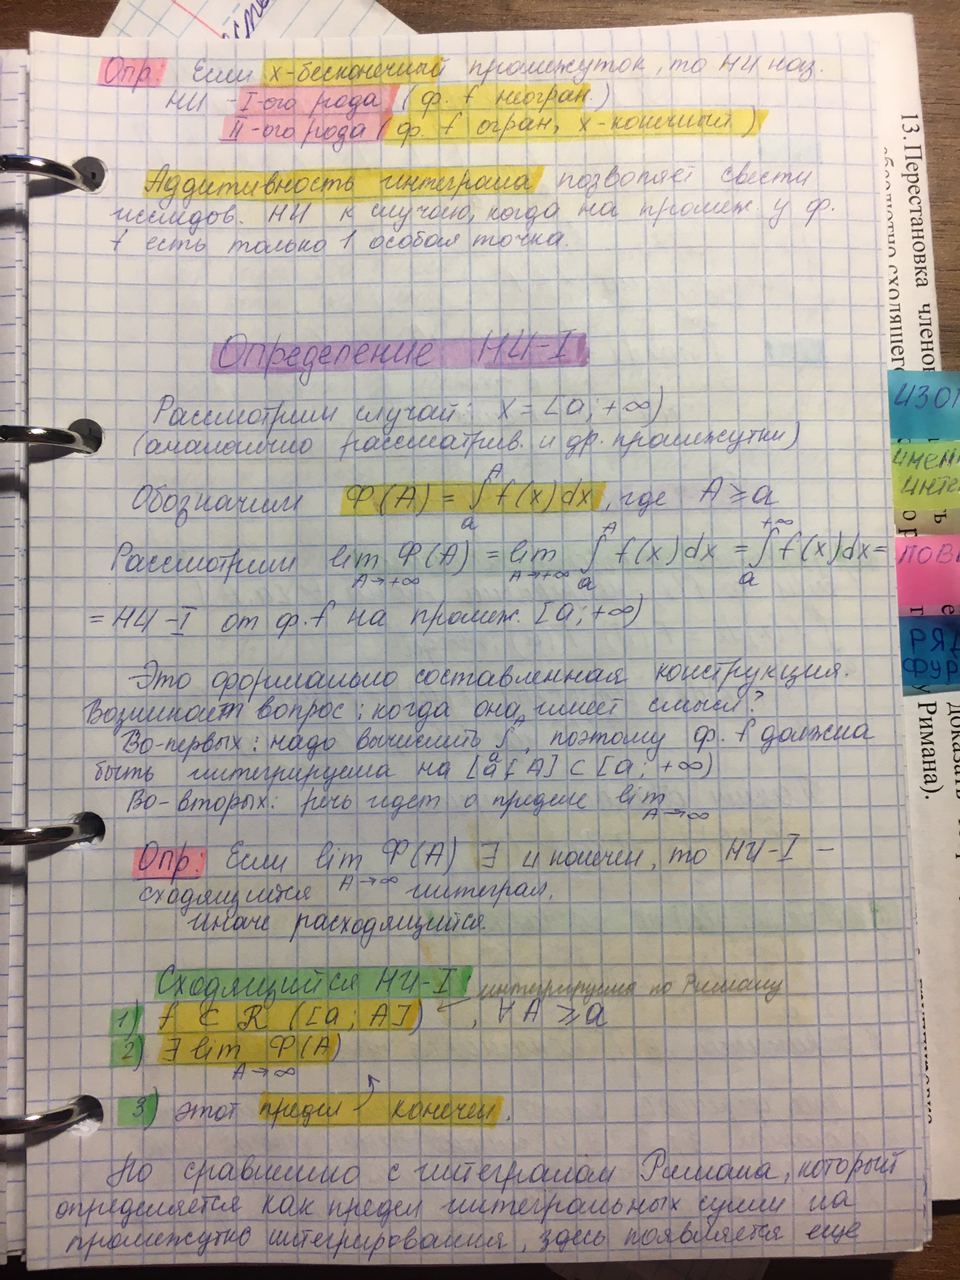 Опр: Если x-бесконечный промежуток, то НИ наз.
НИ - I-ого рода (ф. f неогран.)
II-ого рода (ф. f огран, x-конечный)
Аддитивность интеграла позволяет свести
исследов. НИ к случаю, когда на промеж. у ф.
f есть только 1 особая точка.
Определение НИ-I
Рассмотрим случай: x = [a; +∞)
(аналогично рассматрив. и др. промежутки)
Обозначим Ф(A) = ∫ₐᴬ f(x)dx, где A ≥ a
Рассмотрим lim_{A→+∞} Ф(A) = lim_{A→+∞} ∫ₐᴬ f(x)dx = ∫ₐ^{+∞} f(x)dx =
= НИ-I от ф. f на промеж. [a; +∞)
Это формально составленная конструкция.
Возникает вопрос: когда она имеет смысл?
Во-первых: надо вычислить ∫ₐᴬ, поэтому ф. f должна
быть интегрируема на [a; A] ⊂ [a; +∞)
Во-вторых: речь идет о пределе lim_{A→∞}
Опр: Если lim_{A→∞} Ф(A) ∃ и конечен, то НИ-I -
сходящийся интеграл,
иначе расходящийся.
Сходящийся НИ-I
интегрируема по Риману
1) f ∈ R ([a; A]), ∀ A ≥ a
2) ∃ lim_{A→∞} Ф(A)
3) этот предел конечен.
По сравнению с интегралом Римана, который
определяется как предел интегральных сумм на
промежутке интегрирования, здесь появляется еще
13. Перестановка членов
сходящегося
Римана).
доказать
ИЗО
ИМЕН
ИНТЕ
ПОВ
РЯД
ФУР